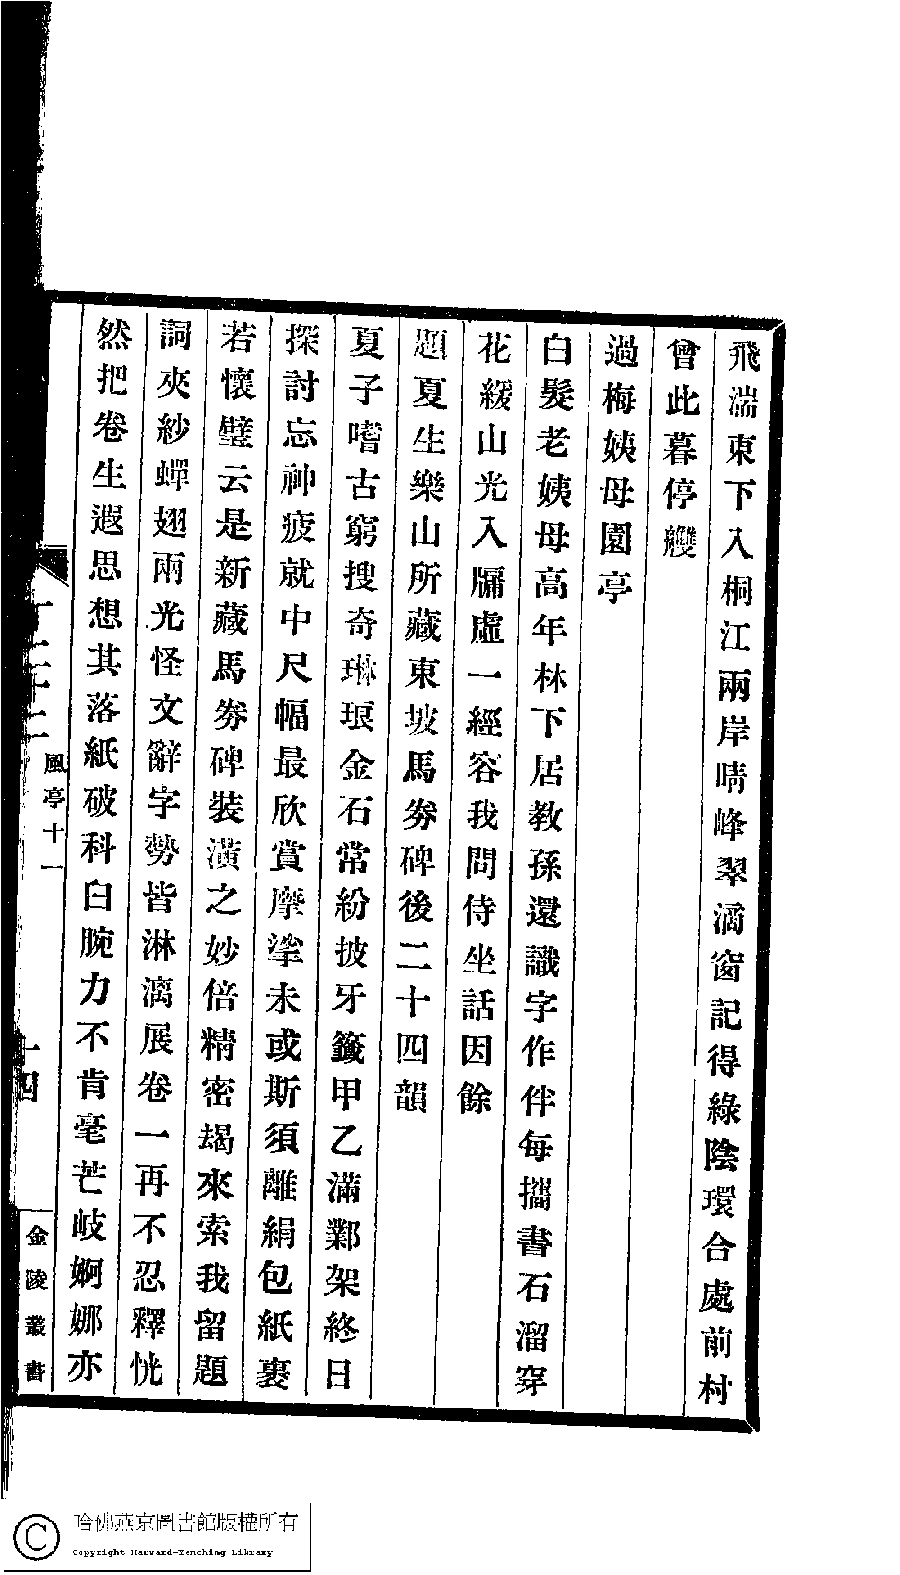 飛湍東下入桐江兩岸晴峰翠滴窗記得綠陰環合處前村
曾此暮停艭
過梅姨母園亭
白髮老姨母高年林下居教孫還識字作伴每攜書石溜穿
花緩山光入牖虛一經容我問侍坐話因餘
題夏生樂山所藏東坡馬券碑後二十四韻
夏子嗜古窮搜奇琳琅金石常紛披牙籤甲乙滿鄴架終日
探討忘神疲就中尺幅最欣賞摩挲未或斯須離絹包紙裹
若懷璧云是新藏馬券碑裝潢之妙倍精密朅來索我留題
詞夾紗蟬翅兩光怪文辭字勢皆淋漓展卷一再不忍釋恍
然把卷生遐思想其落紙破科臼腕力不肯毫芒岐婀娜亦
風亭十一
十四
金陵叢書
哈佛燕京圖書館版權所有
Copyright Harvard-Yenching Library